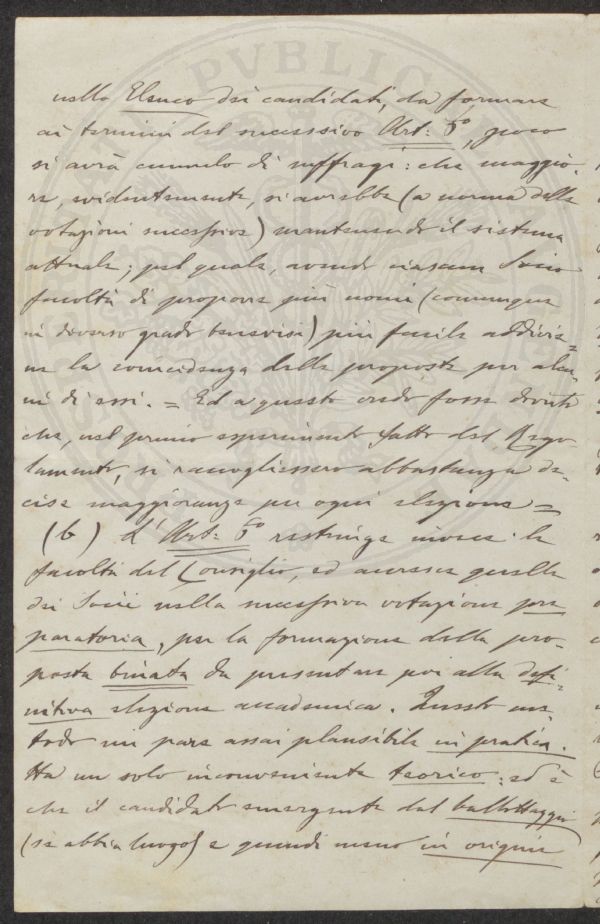 nello Elenco dei candidati, da formare
ai termini del successivo Art: 5º, poco
si avrà cumulo di suffragi: che maggio-
re, evidentemente, si avrebbe (a norma delle
votazioni successive) mantenendo il sistema
attuale; pel quale, avendo ciascun Socio
facoltà di proporre più nomi (comunque
in diverso grado benevisi) più facile addivie-
ne la coincidenza delle proposte per alcu-
ni di essi. = Ed a questo credo fosse dovuto
che, nel primo esperimento fatto del Rego-
lamento, si raccogliessero abbastanza de-
cise maggioranze per ogni elezione =
(b) L'Art: 5º restringe invece le
facoltà del Consiglio, ed accresce quelle
dei Socii nella successiva votazione pre
paratoria, per la formazione della pro-
posta binata da presentare poi alla defi-
nitiva elezione accademica. Questo me-
todo mi pare assai plausibile in pratica.
Ha un solo inconveniente teorico: ed è
che il candidato emergente dal ballottaggio
(se abbia luogo) e quindi meno in origine